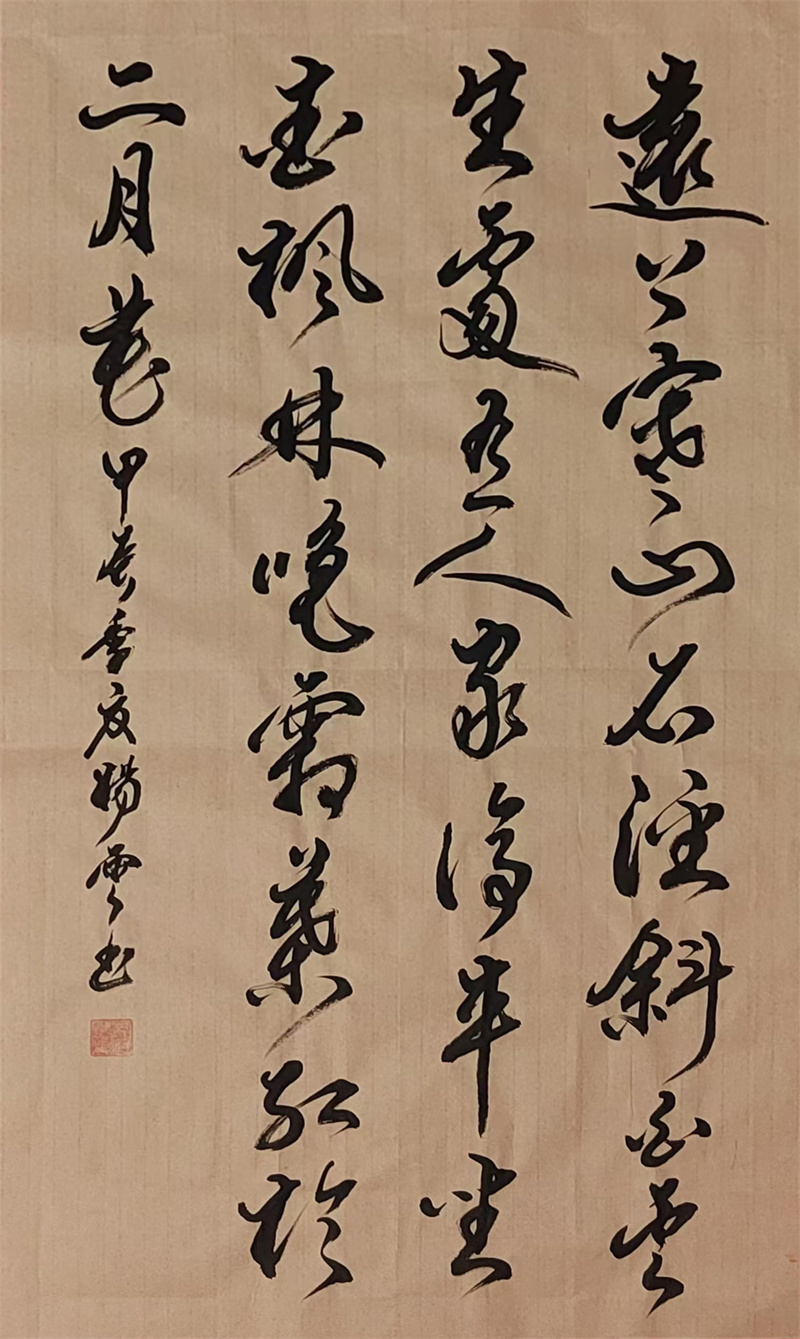 遠上寒山石徑斜白雲
生處有人家停車坐
愛楓林晚霜葉紅於
二月花甲辰季夏楊雲书